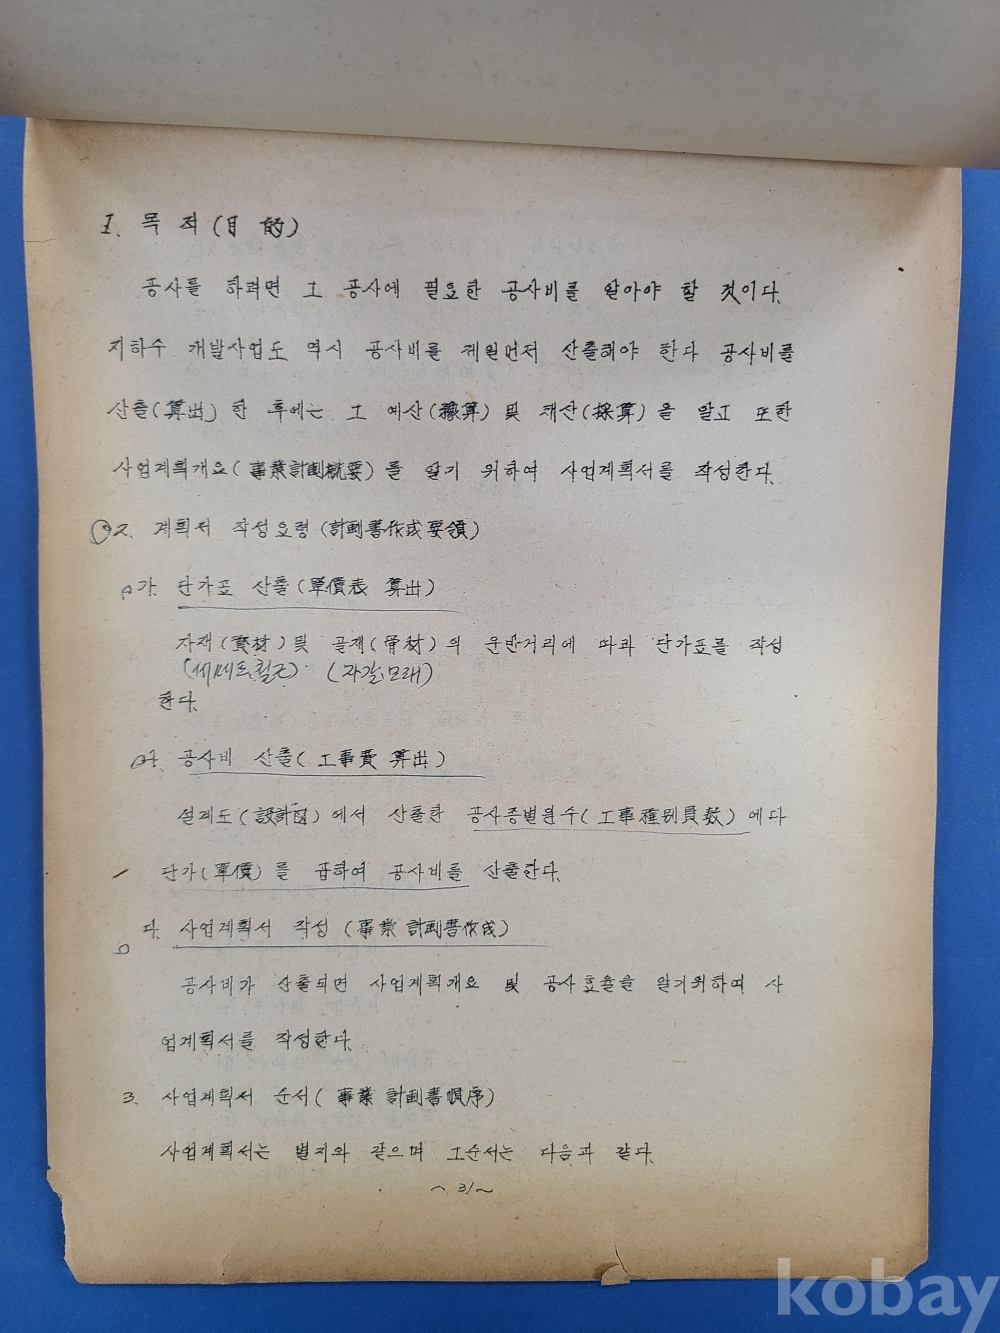 I. 목적(目的)
공사를 하려면 그 공사에 필요한 공사비를 알아야 할 것이다.
지하수 개발사업도 역시 공사비를 제일먼저 산출해야 한다 공사비를
산출(算出) 한 후에는 그 예산(豫算) 및 채산(採算)을 알고 또한
사업계획개요(事業計劃概要)를 알기 위하여 사업계획서를 작성한다.
2. 계획서 작성요령(計劃書作成要領)
가. 단가표 산출(單價表 算出)
자재(資材) 및 골재(骨材)의 운반거리에 따라 단가표를 작성
(세메트, 철근) (자갈, 모래)
한다.
나. 공사비 산출(工事費 算出)
설계도(設計図)에서 산출한 공사종별원수(工事種別員数)에다
단가(單價)를 곱하여 공사비를 산출한다.
다. 사업계획서 작성(事業 計劃書作成)
공사비가 산출되면 사업계획개요 및 공사효율을 알기위하여 사
업계획서를 작성한다.
3. 사업계획서 순서(事業 計劃書順序)
사업계획서는 별지와 같으며 그순서는 다음과 같다.
~31~
kobay